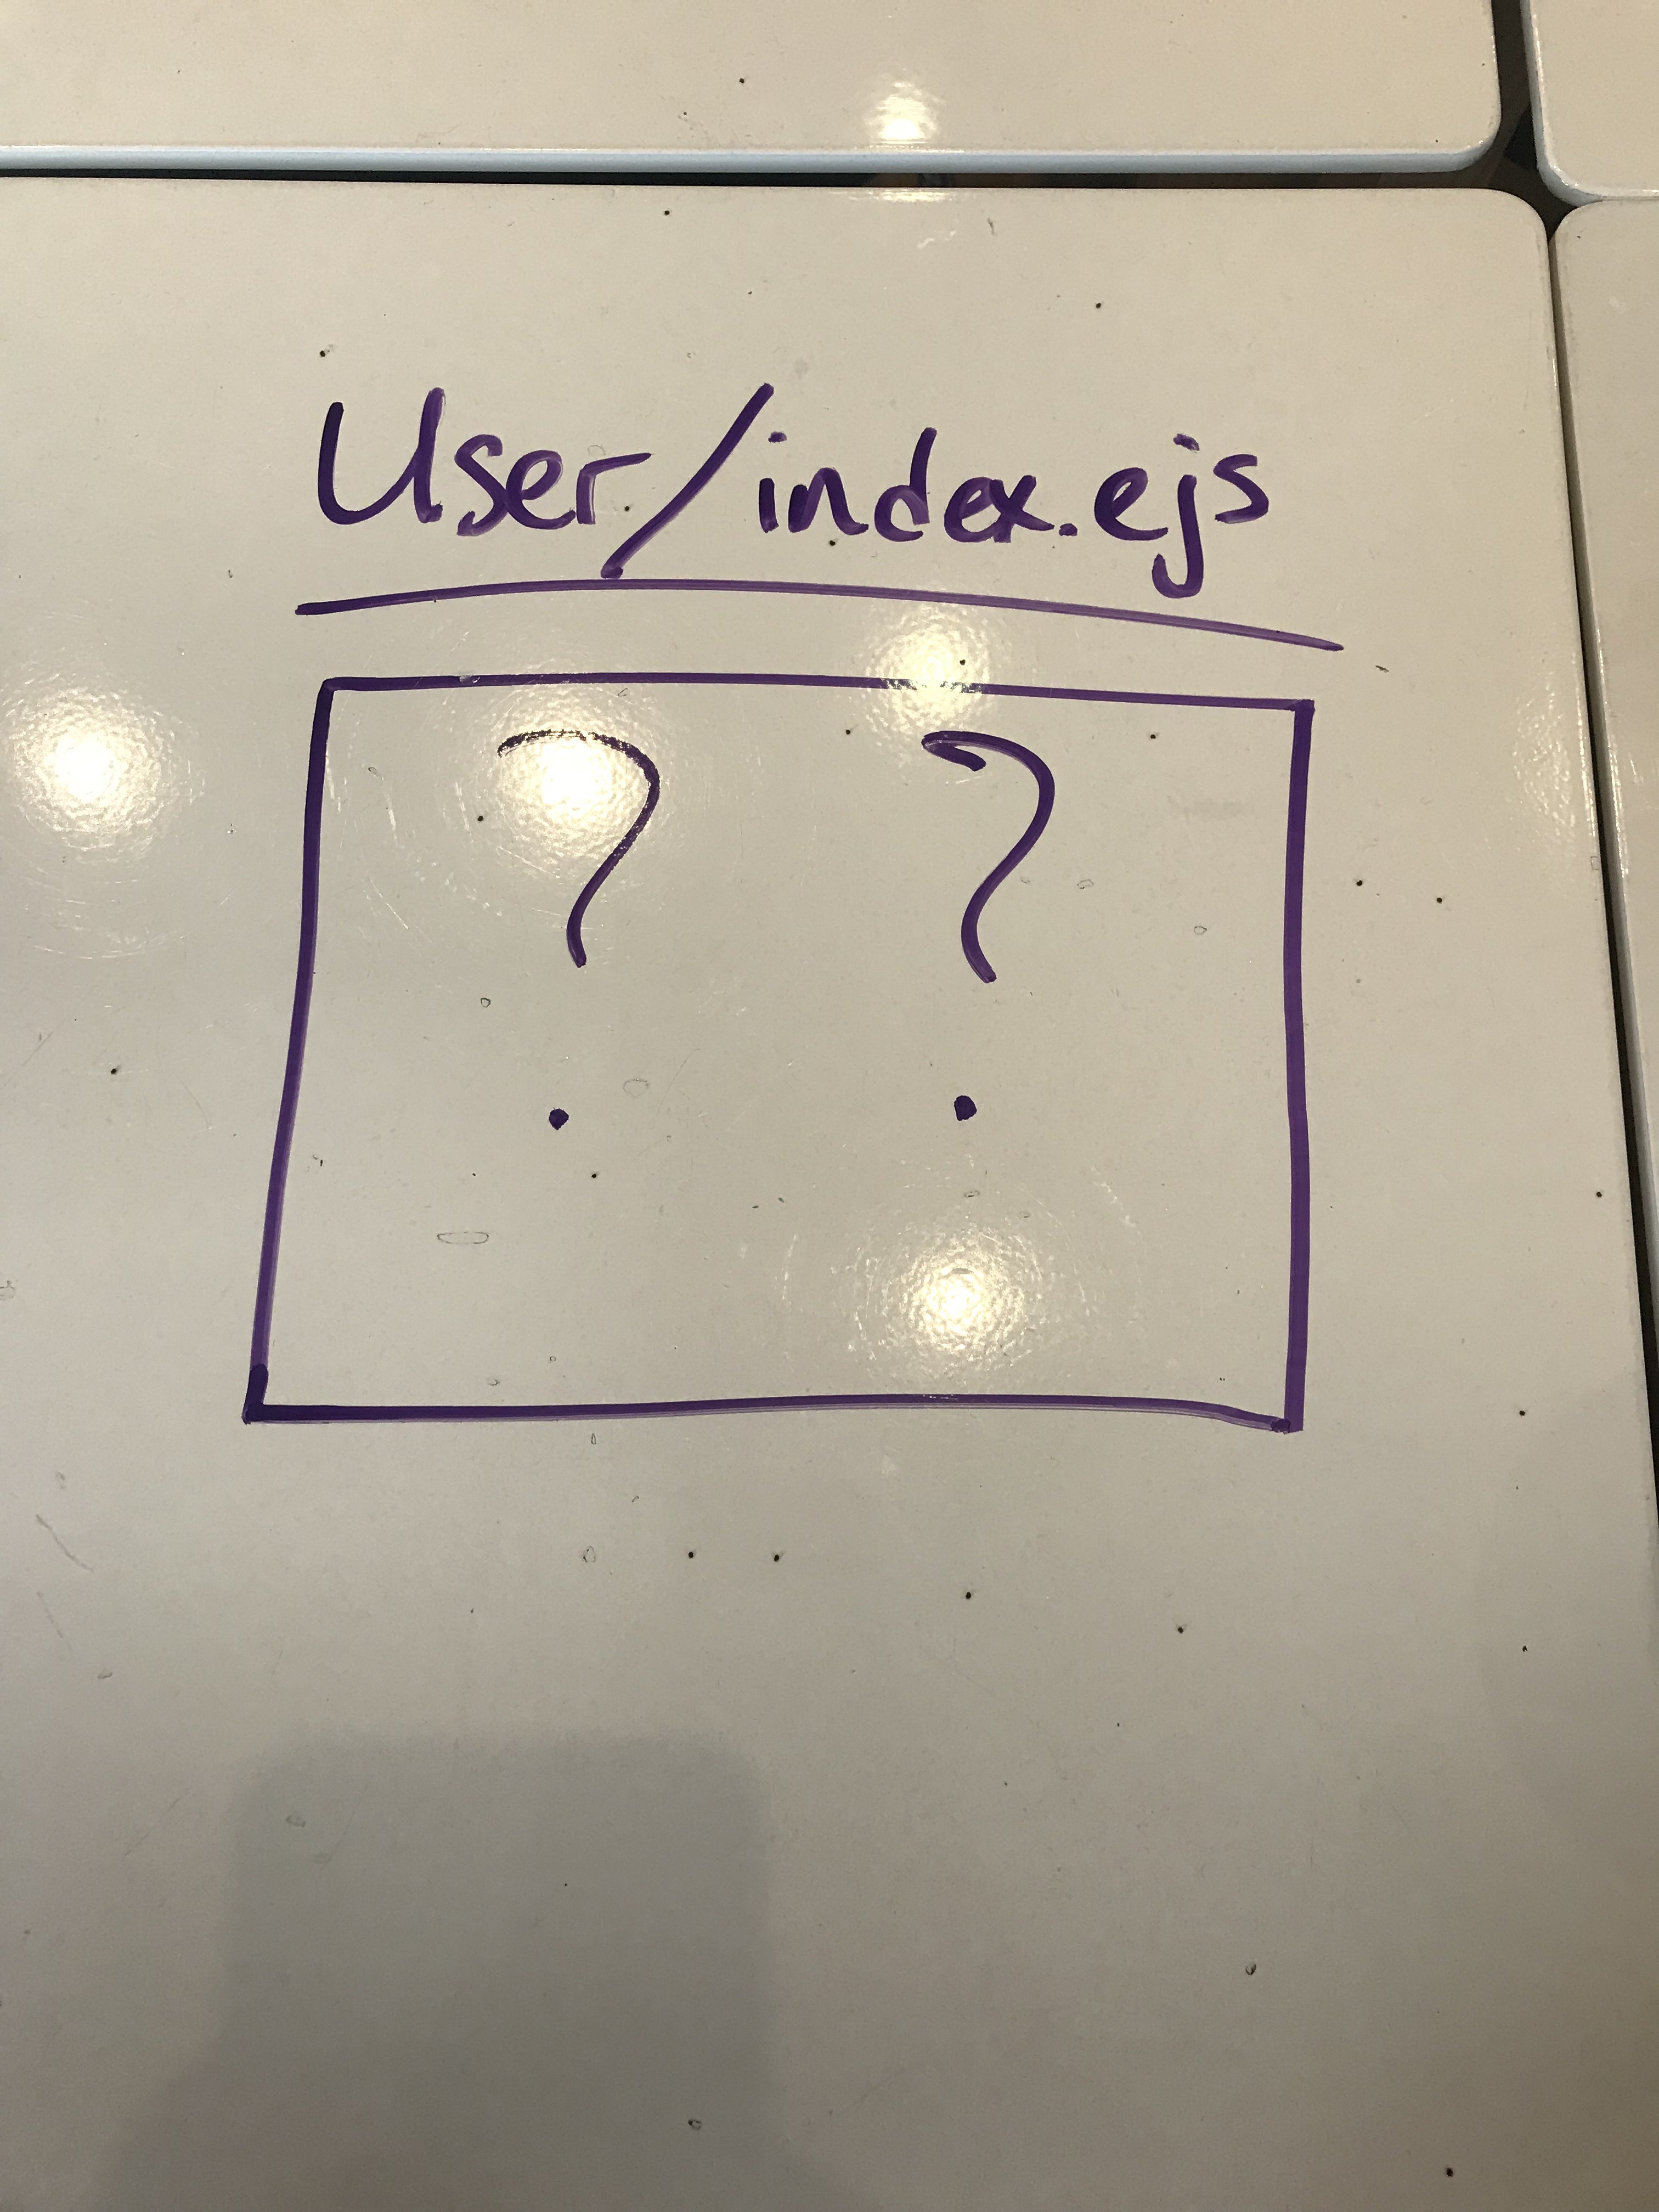 User/index.ejs
? ?